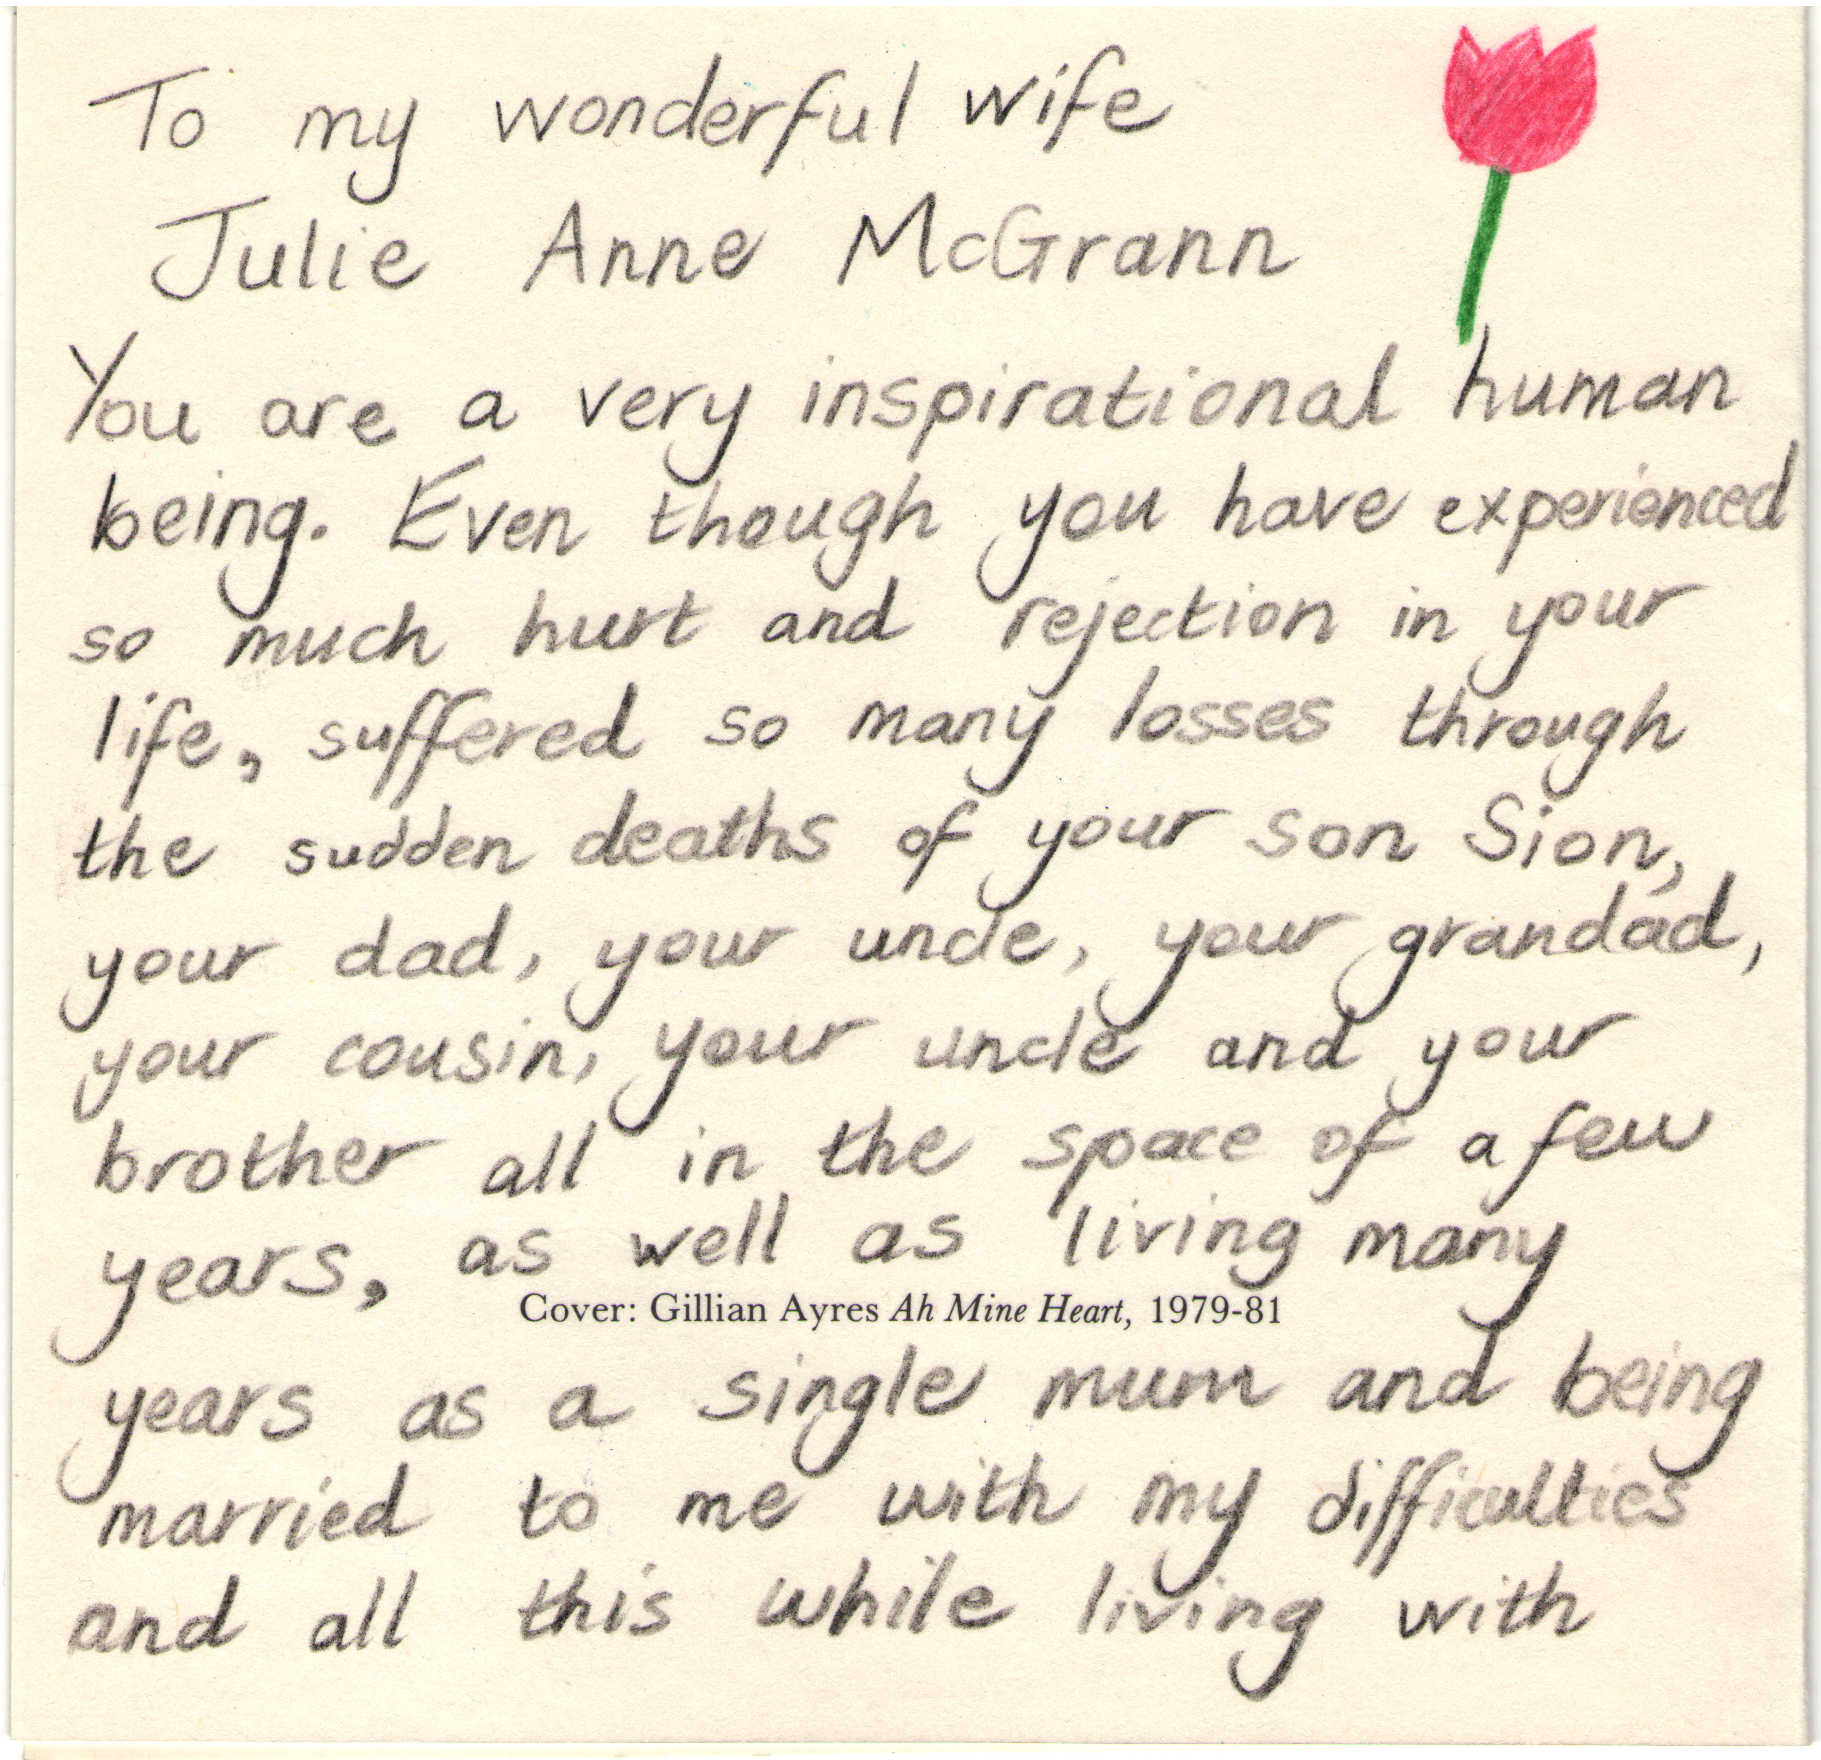 To my wonderful wife
Julie Anne McGrann
You are a very inspirational human
being. Even though you have experienced
so much hurt and rejection in your
life, suffered so many losses through
the sudden deaths of your son Sion,
your dad, your uncle, your grandad,
your cousin, your uncle and your
brother all in the space of a few
years, as well as living many
Cover: Gillian Ayres Ah Mine Heart, 1979-81
years as a single mum and being
married to me with my difficulties
and all this while living with